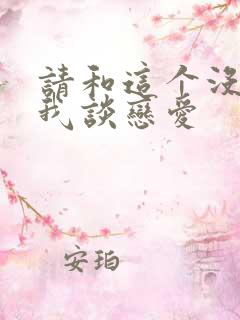 請和這个沒
我談戀愛
安珀